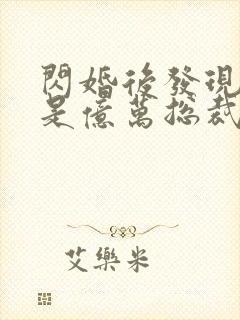 閃婚後發現
是億萬總裁
艾樂米